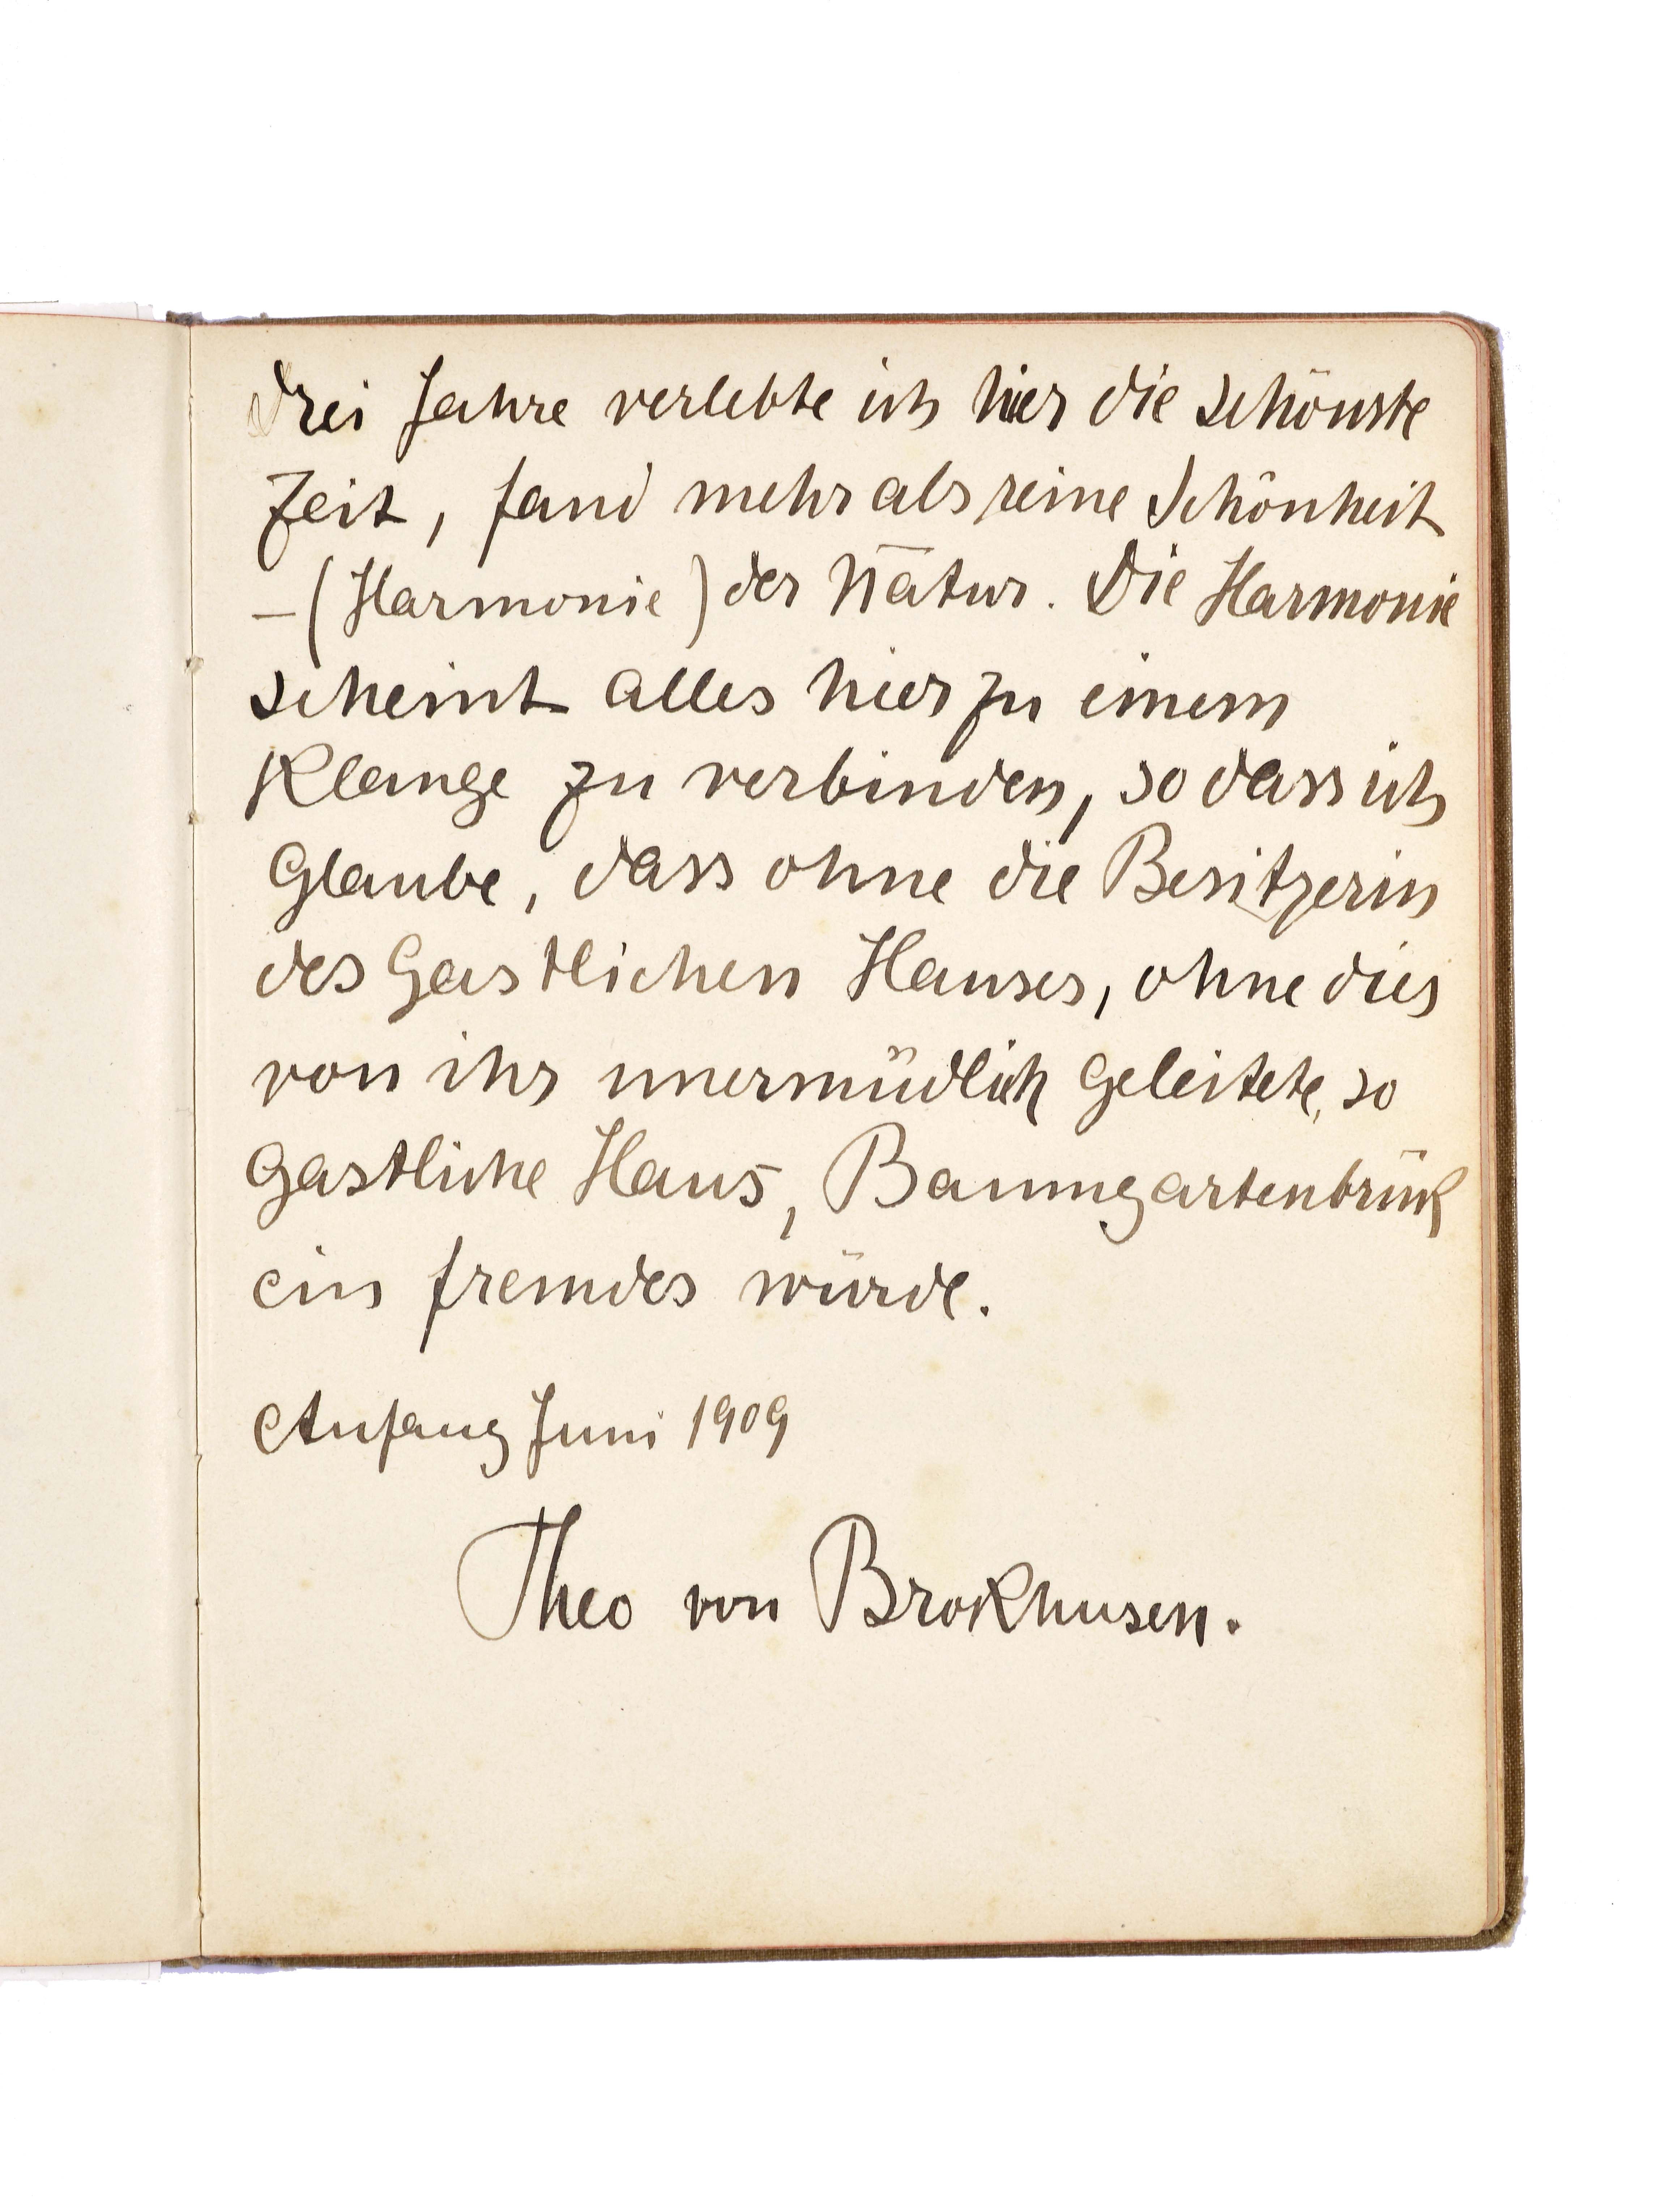 Drei Jahre verlebte ich hier die schönste
Zeit, fand mehr als reine Schönheit
– (Harmonie) der Natur. Die Harmonie
scheint alles hier zu einem
Klange zu verbinden, so dass ich
glaube, dass ohne die Besitzerin
des gastlichen Hauses, ohne dies
von ihr unermüdlich geleitete, so
gastliche Haus, Baumgartenbrück
ein fremdes würde.
Anfang Juni 1909
Theo von Brokhusen.